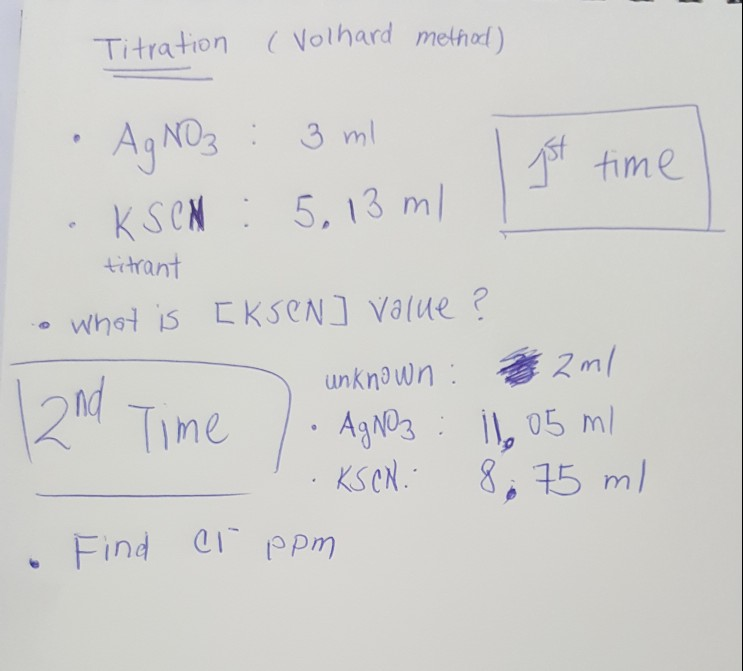 Titration (Volhard method)
• AgNO3 : 3 ml
1st time
• KSCN : 5.13 ml
titrant
• What is [KSCN] value?
2nd Time
unknown: 2 ml
• AgNO3 : 11.05 ml
• KSCN: 8.75 ml
• Find Cl⁻ ppm